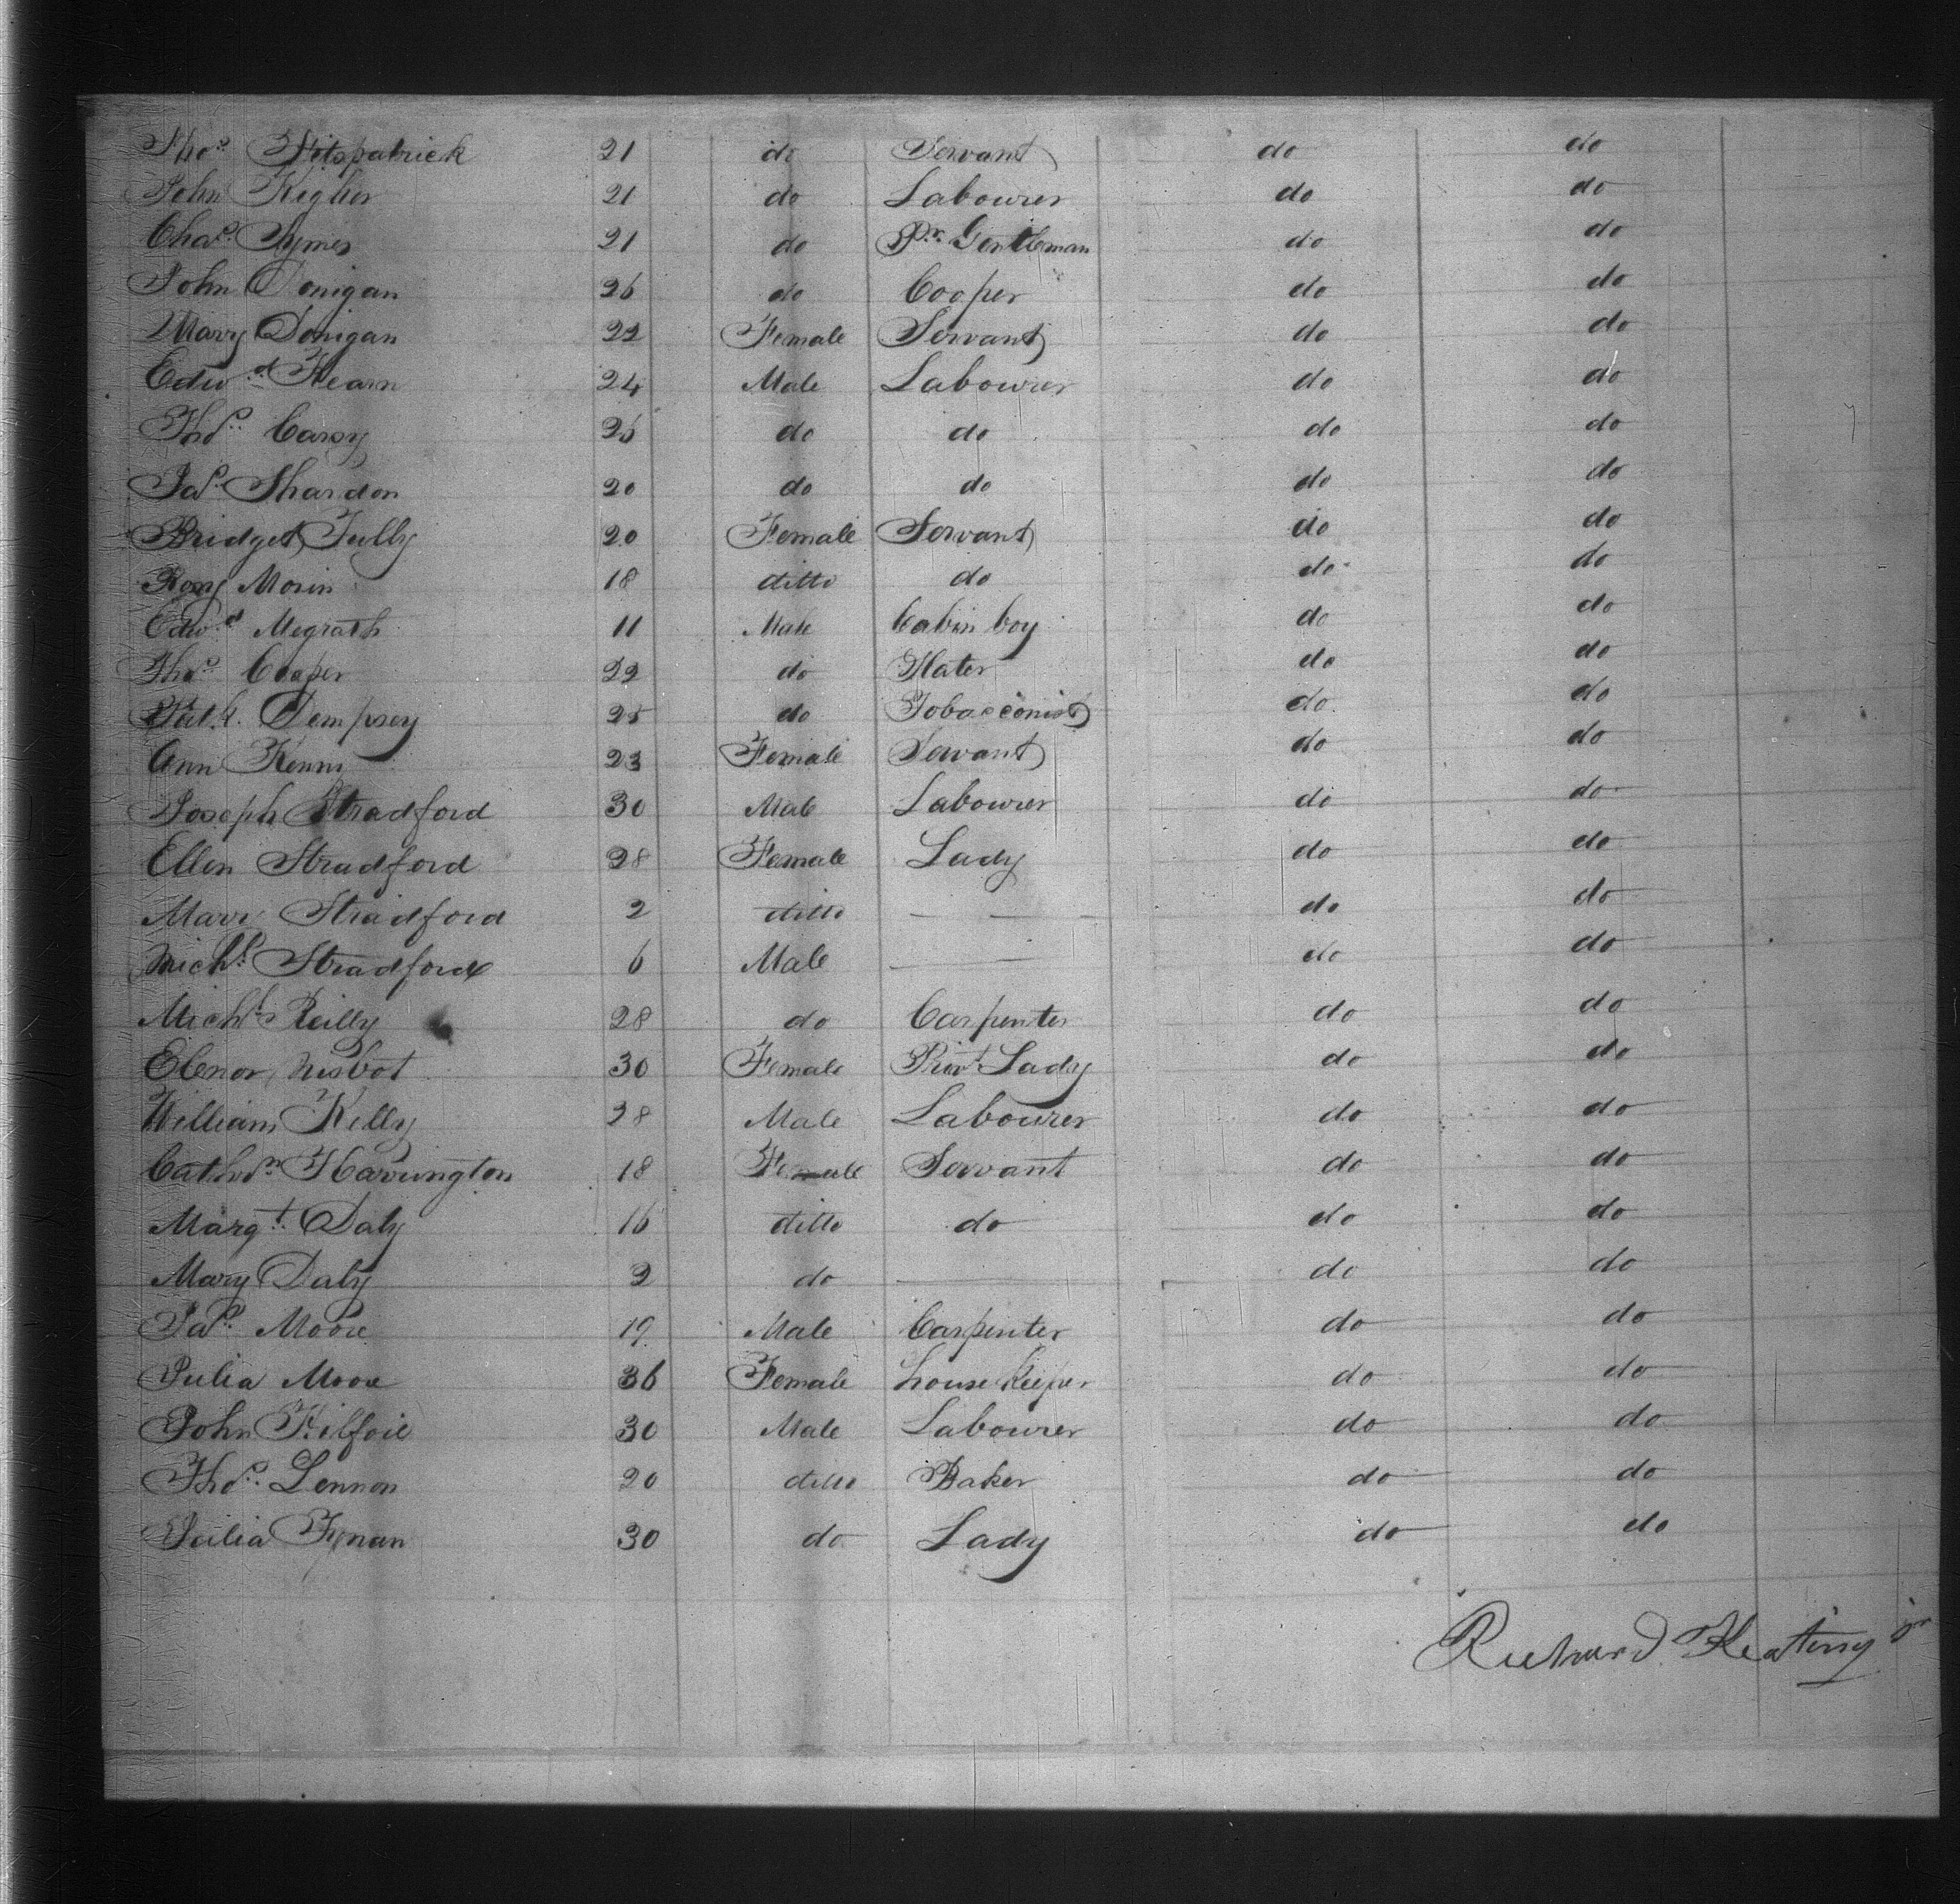 Thos. Fitzpatrick 21 do Servant do do
John Kigher 21 do Labourer do do
Chas. Symes 21 do Pr. Gentleman do do
John Donigan 26 do Cooper do do
Mary Donigan 22 Female Servant do do
Edwd. Hearn 24 Male Labourer do do
Thos. Carey 26 do do do do
Jas. Shardon 20 do do do do
Bridget Tully 20 Female Servant do do
Rosy Morin 18 ditto do do do
Edwd. Megrath 11 Male Cabin boy do do
Thos. Cooper 22 do Slater do do
Patk. Dempsey 25 do Tobacconist do do
Ann Kenny 23 Female Servant do do
Joseph Stradford 30 Male Labourer do do
Ellen Stradford 28 Female Lady do do
Mary Stradford 2 ditto — — do do
Michl. Stradford 6 Male — — do do
Michl. Reilly 28 do Carpenter do do
Elenor Nisbot 30 Female Privt. Lady do do
William Kelly 28 Male Labourer do do
Cathrn. Harrington 18 Female Servant do do
Margt. Daly 16 ditto do do do
Mary Daly 9 do — do do
Jas. Moore 19 Male Carpenter do do
Julia Moore 36 Female house Keeper do do
John Kilfoil 30 Male Labourer do do
Thos. Lennon 20 ditto Baker do do
Julia Fynan 30 do Lady do do
Richard Keating jr